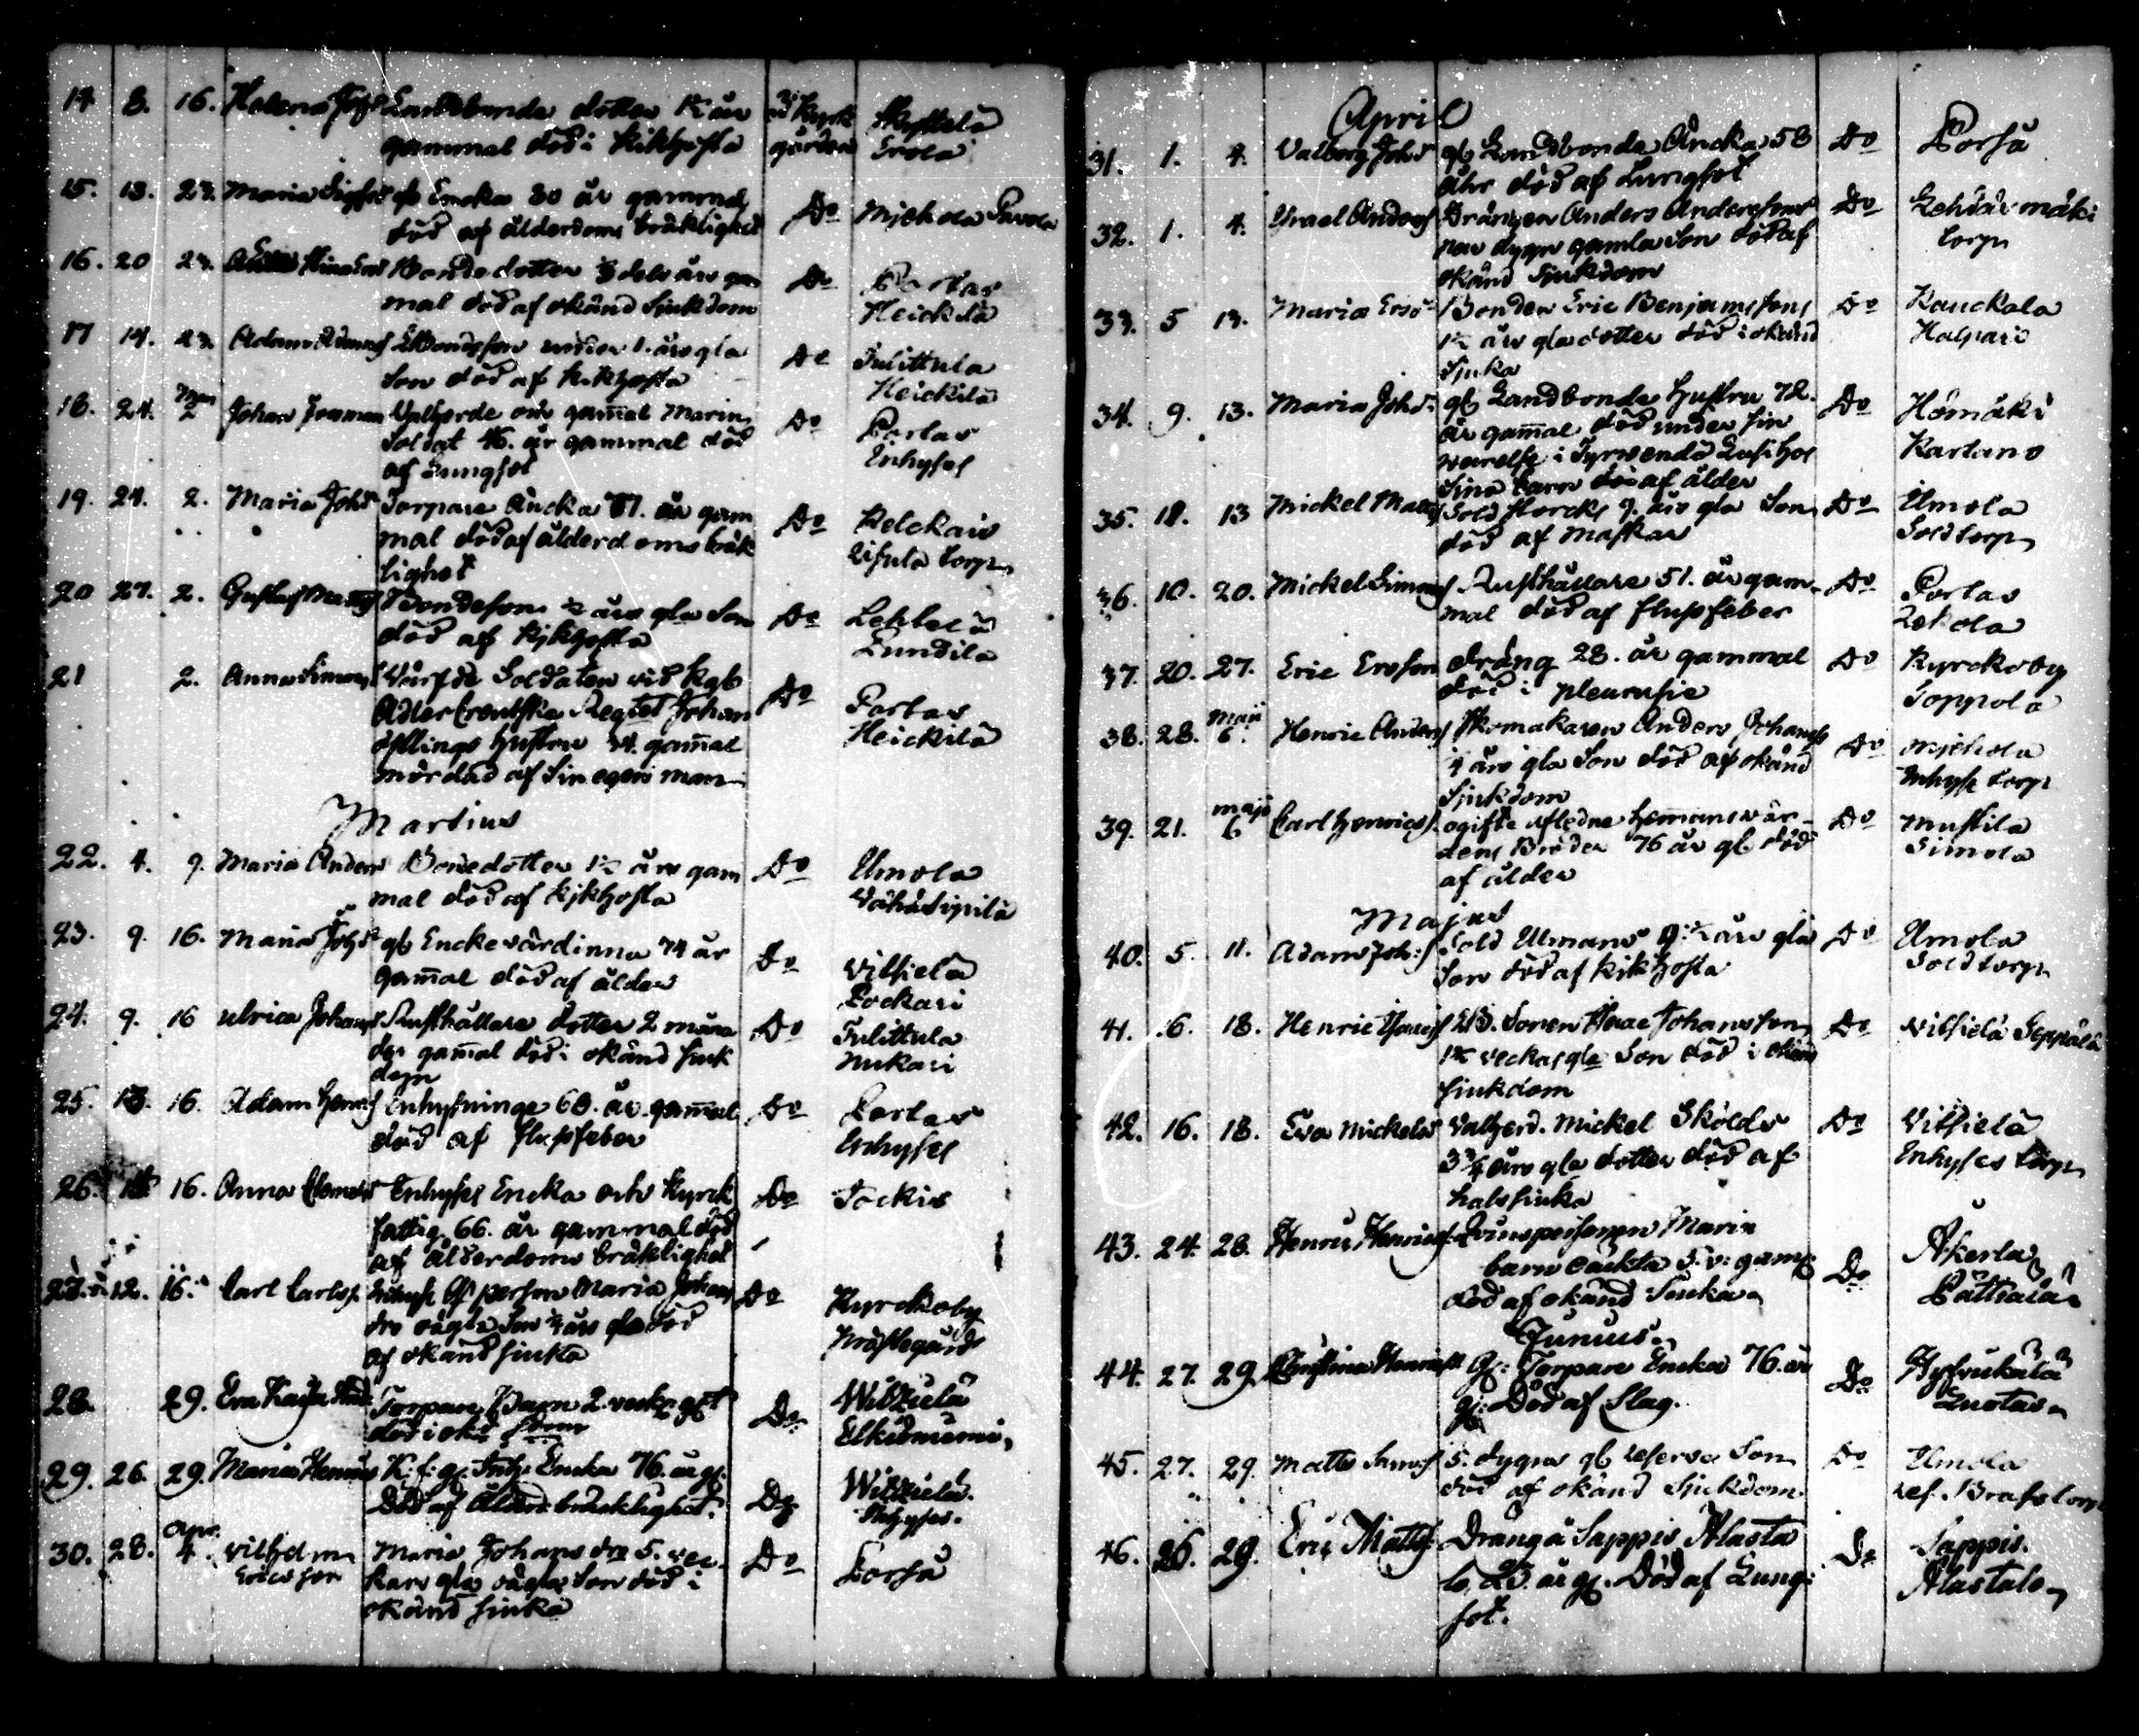 14 8. 16. Helena Joh:s Landbonde dotter 1½ år i Kyrk Skyttelä
gammal död i Kikhosta gården Erola
15. 13. 23. Maria Sigfrs gl Encka 80 år gammal
död af ålderdoms bräklighet Do Mjehola Pavola
16. 20 23. Bonde dotter ⅓ dels års gam
mal död af okänd Sjukdom Do Portas
Heickilä
17 14. 23. Adam Adamss LBondeson under 1. års gla
Son död af kikhosta Do Tulittula
Heickilä
18. 24. Mars 2 Johan Valfjerde och gamal Marin
Soldat 46. år gammal död
af Lungsot Do Portas
Enhyses
19. 24. 2. Maria Johs Torpare Encka 81. år gam
mal död af ålderdoms bräk
lighet Do Kelckais
torp
20 27. 2. Gustaf Mattss Bondeson ½ års gla Son
död af Kikhosta Do Lehlelä
Lundila
21 2. Anna Simons Värfde Soldaten vid Kgl
Adlercreutzska Regtet Johan
Hustru 34. gamal
mördad af Sin egen man Do Portas
Heickilä
Martius
22. 4. 9. Maria Anders Bonedotter 1½ års gam
mal död af kikhosta Do Uimola
Vähä Sipilä
23. 9. 16. Maria Johs gl Enckevärdinna 74 år
gamal död af ålder Do Vilkielä
Pockari
24. 9. 16 Ulrica Johans Rusthållare dotter 2 måna
der gamal död i okänd siuk
dom Do Tulittula
Nukari
25. 13. 16. Adam Henrs Enhysninge 60. år gamal
död af flussfeber Do Portas
Enhyses
26. 16. Anna Clemets Enhyses Encka och Kyrck
fattig 66. år gammal död
af ålderdoms bräklighet Do Tockis
27. 12. 16. Carl Carlss. Inhyse Qs person Maria Johans
dro oägta Son ¼ års gla död
af okänd siuka Do Kyrckoby
Prästegård
28. 29. Eva Kajsa Torpare Barn 2. veck: glt
död i okd Do Wilkielä
Elkiömiemi
29. 26. 29. Maria Henrics K: f: gl: Inh: Encka 76. år gl:
Död af Ålders bräcklighet. Do Wilkielä.
Inhyses.
30. 28. Apr. 4. Vilhelm
Ericsson Maria Johans dro 5. vec-
kars gla oägta Son död i
okänd siuka Do Porsa
April
31. 1. 4. Valborg Johs gl Landbonde Encka 58
åhr död af Lungsot Do Porsa
32. 1. 4. Israel Anderss Drängen Anders Anderssons
dygn gamla Son död af
okänd Sjukdom Do mäki
torp
33. 5 13. Maria Ersd: Bonden Eric Benjamssons
1½ års gla dotter död i okänd
Sjuka Do Kauckola
Halpari
34. 9. 13. Maria Johd: gl Landbonde Hustru 72.
år gamal död under sin
warelse i Tyrwendö hos
Sina barn död af ålder Do Hömäki
Kartano
35. 12. 13 Mickel Matss Sold Horcks 9. års gla Son
död af Maskar Do Uimola
Soldtorp
36. 10. 20. Mickel Simonss Rusthållare 51. år gam-
mal död af flussfeber Do Portas
Lekola
37. 20. 27. Eric Ersson dräng 28. år gammal
död i pleuresie Do Kyrckoby
Toppola
38. 28. Maij 6. Henric Anderss Skomakaren Anders Johanss
¼ års gla Son död af okänd
Sjukdom Do Mjehola
Inhyse torp
39. 21. Maji 6 Carl Henricss. ogifte afledne Hemmanswär-
dens Broder 76 år gl död
af ålder Do Mustila
Simola
Majus
40. 5. 11. Adam Joh:s Sold Ulmans 9:½ års gla
Son död af kikhosta Do Uimola
Soldtorp
41. 6. 18. Henric Isacss LB. Sonen Isac Johansson
1½ veckas gla Son död i okänd
siukdom Do Vilkielä Seppälä
42. 16. 18. Eva Mickels Valfjerd. Mickel Skölds
3¾ års gla dotter död af
halssiuka Do Vilkielä
Enhyses torp
43. 24. 28. Henric Henricss. Qvinspersonen Maria
barn oäckta 5. v: gamt
död af okänd Siuka Do Åkerla
Pättiälä
Junius.
44. 27. 29 Christina Henricsd gl: Torpare Encka 76. år
gl: Död af Slag. Do
45. 27. 29. Matts 5. dygns gl reserve Son
död af okänd Sjuckdom. Do Uimola
res. torp
46. 26. 29. Eric Mattss: Dräng å Sappis Alasta
lo 25. år gl. Död af Lung:
sot. Do Sappis.
Alastalo